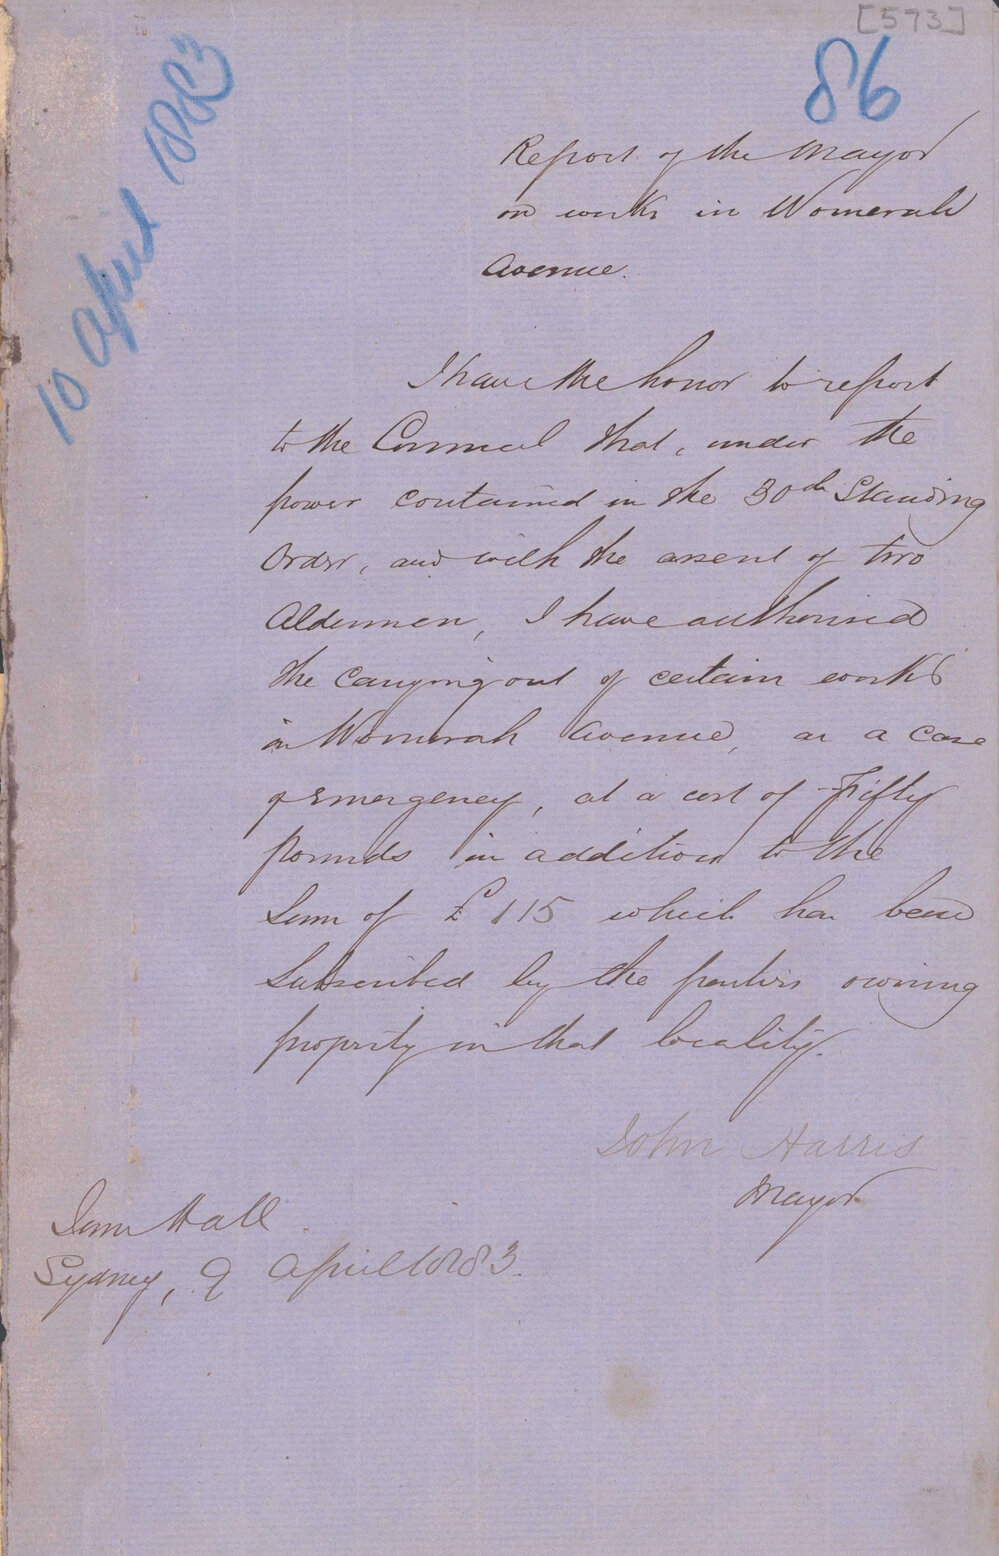 [573]
86
10 April 1883
Report of the Mayor
on works in Womerah
Avenue.
I have the honor to report
to the Council that, under the
power contained in the 30th Standing
Order, and with the assent of two
Aldermen, I have authorised
the carrying out of certain works
in Womerah Avenue, as a case
of emergency, at a cost of Fifty
pounds in addition to the
Sum of £115 which has been
Subscribed by the parties owning
property in that locality.
John Harris
Mayor
Town Hall
Sydney, 9 April 1883.